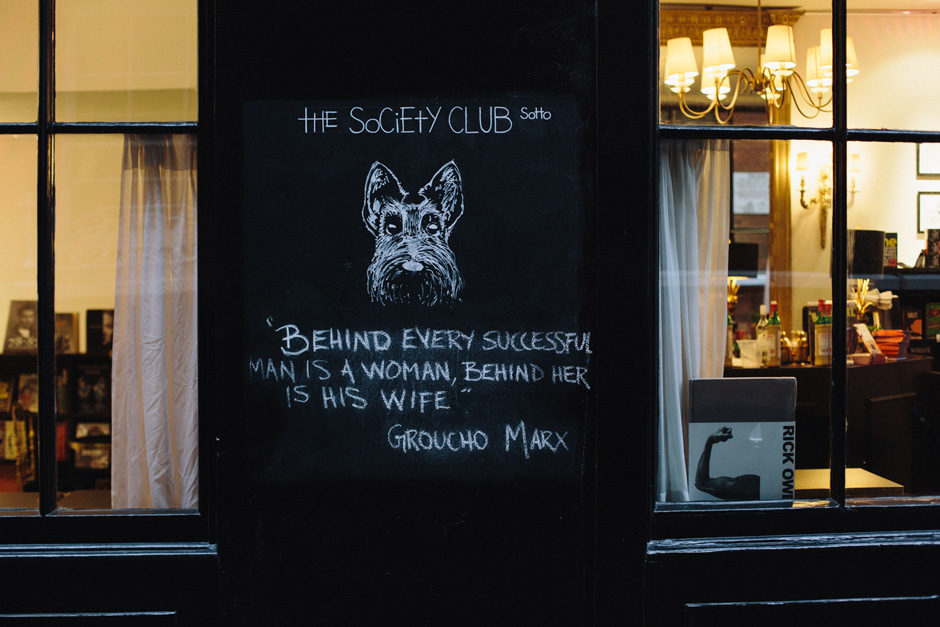 THE SOCIETY CLUB Sotto
"BEHIND EVERY SUCCESSFUL
MAN IS A WOMAN, BEHIND HER
IS HIS WIFE"
GROUCHO MARX
RICK OW